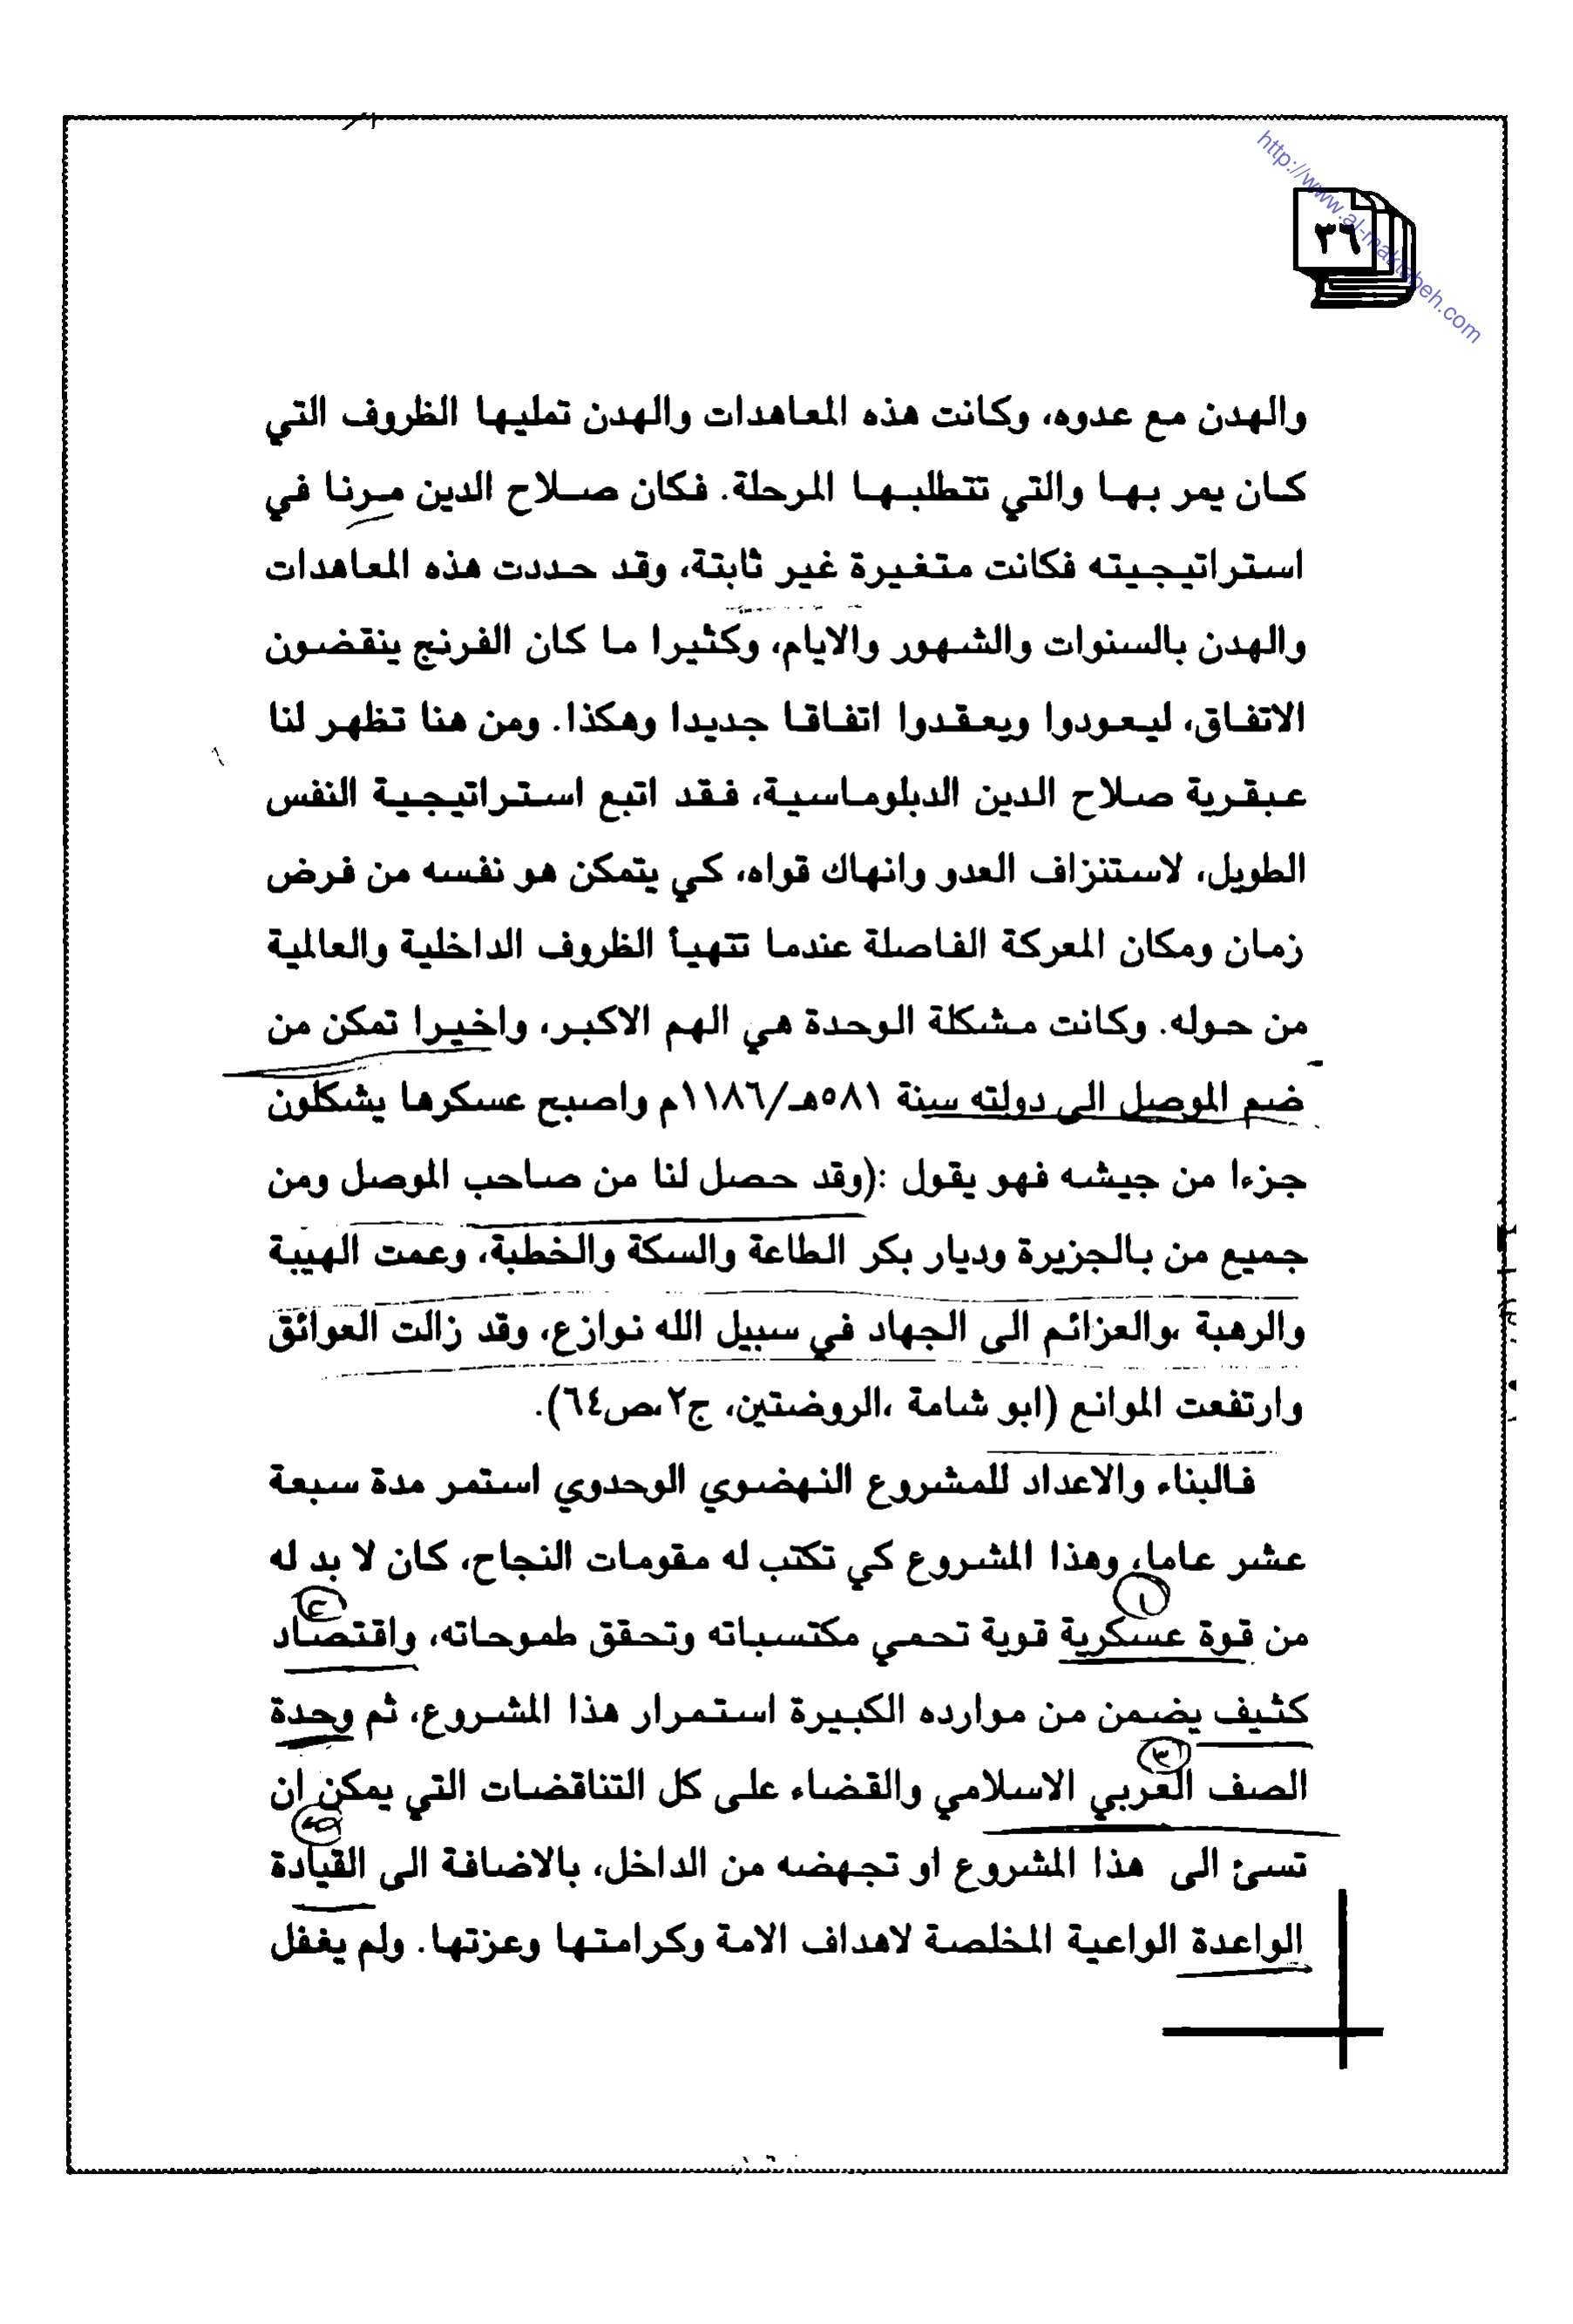 http://www.al-maktabeh.com
٣٦
والهدن مع عدوه، وكانت هذه المعاهدات والهدن تمليها الظروف التي
كان يمر بها والتي تتطلبها المرحلة. فكان صلاح الدين مرنا في
استراتيجيته فكانت متغيرة غير ثابتة، وقد حددت هذه المعاهدات
والهدن بالسنوات والشهور والايام، وكثيرا ما كان الفرنج ينقضون
الاتفاق، ليعودوا ويعقدوا اتفاقا جديدا وهكذا. ومن هنا تظهر لنا
عبقرية صلاح الدين الدبلوماسية، فقد اتبع استراتيجية النفس
الطويل، لاستنزاف العدو وانهاك قواه، كي يتمكن هو نفسه من فرض
زمان ومكان المعركة الفاصلة عندما تتهيأ الظروف الداخلية والعالمية
من حوله. وكانت مشكلة الوحدة هي الهم الاكبر، واخيرا تمكن من
ضم الموصل الى دولته سنة ٥٨١هـ/١١٨٦م واصبح عسكرها يشكلون
جزءا من جيشه فهو يقول :(وقد حصل لنا من صاحب الموصل ومن
جميع من بالجزيرة وديار بكر الطاعة والسكة والخطبة، وعمت الهيبة
والرهبة ،والعزائم الى الجهاد في سبيل الله نوازع، وقد زالت العوائق
وارتفعت الموانع (ابو شامة ،الروضتين، ج٢،ص٦٤).
فالبناء والاعداد للمشروع النهضوي الوحدوي استمر مدة سبعة
عشر عاما، وهذا المشروع كي تكتب له مقومات النجاح، كان لا بد له
١ ٢
من قوة عسكرية قوية تحمي مكتسباته وتحقق طموحاته، واقتصاد
كثيف يضمن من موارده الكبيرة استمرار هذا المشروع، ثم وحدة
٣
الصف العربي الاسلامي والقضاء على كل التناقضات التي يمكن ان
تسئ الى هذا المشروع او تجهضه من الداخل، بالاضافة الى القيادة
الواعدة الواعية المخلصة لاهداف الامة وكرامتها وعزتها. ولم يغفل